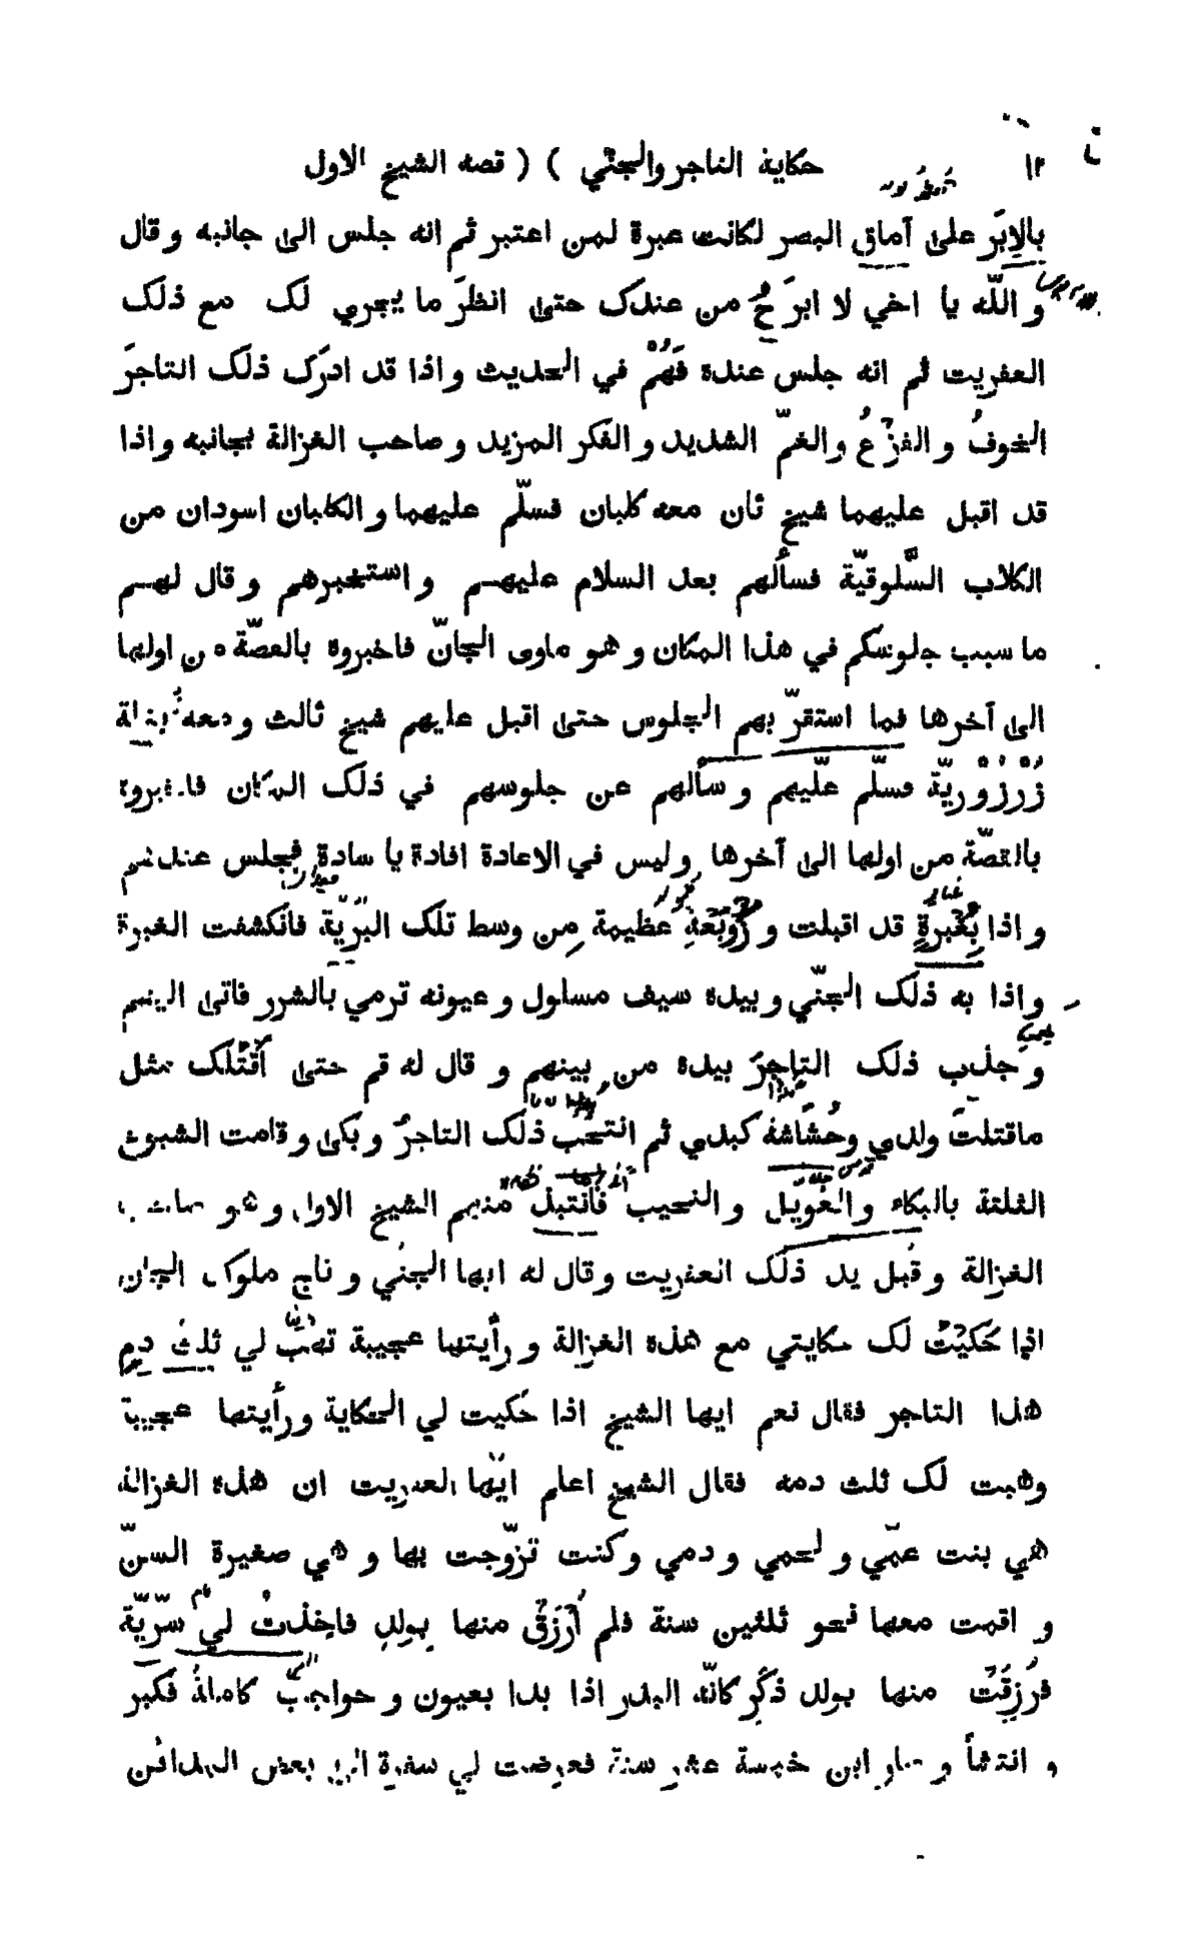 ١٢ حكاية التاجر والجنّي ) ( قصة الشيخ الاول
بالاِبَر على آماق البصر لكانت عبرة لمن اعتبر ثم انه جلس الى جانبه و قال
و اللّه يا اخي لا ابرَحُ من عندك حتى انظرَ ما يجري لك مع ذلك
العفريت ثم انه جلس عنده فَهُمْ في الحديث و اذا قد ادرَك ذلك التاجرَ
الخوفُ و الفزعُ والغمّ الشديد و الفكر المزيد و صاحب الغزالة بجانبه و اذا
قد اقبل عليهما شيخ ثان معه كلبان فسلّم عليهما و الكلبان اسودان من
الكلاب السَّلوقيّة فسألهم بعد السلام عليهم و استخبرهم و قال لهم
ما سبب جلوسكم في هذا المكان و هو ماوى الجانّ فاخبروه بالقصّة من اولها
الى آخرها فما استقرّ بهم الجلوس حتى اقبل عليهم شيخ ثالث و معه بغلة
زُرْزُوْرِيّة فسلّم عليهم و سألهم عن جلوسهم في ذلك المكان فاخبروه
بالقصّة من اولها الى آخرها وليس في الاعادة افادة يا سادة فجلس عندهم
و اذا بِغَبرةٍ قد اقبلت و زَوبَعةٍ عظيمة مِن وسط تلك البَرّيّة فانكشفت الغبرة
و اذا به ذلك الجنّي و بيده سيف مسلول و عيونه ترمي بالشرر فاتى اليهم
و جذب ذلك التاجرَ بيده من بينهم و قال له قم حتى اَقْتُلك مثل
ماقتلتَ ولدي وحُشَاشة كبدي ثم انتحَب ذلك التاجرُ و بكى و قامت الشيوخ
الثلثة بالبكاء والعَوِيْل و النحيب فانتبل منهم الشيخ الاول و هو صاحب
الغزالة و قبل يد ذلك العفريت وقال له ايها الجنّي و تاج ملوك الجان
اذا حَكَيْتُ لك حكايتي مع هذه الغزالة و رأيتها عجيبة تهَبُ لي ثلثَ دم
هذا التاجر فقال نعم ايها الشيخ اذا حَكيت لي الحكاية و رأيتها عجيبة
وهبت لك ثلث دمه فقال الشيخ اعلم ايّها العفريت ان هذه الغزالة
هي بنت عمّي و لحمي و دمي و كنت تزّوجت بها و هي صغيرة السنّ
و اقمت معها نحو ثلثين سنة فلم اُرْزَقْ منها بولدٍ فاخذتُ لي سرّيّة
فرُزِقْتُ منها بولد ذكَرٍ كانّه البدر اذا بدا بعيون و حواجبَ كاملةٍ فكبر
و انتشأ و صار ابن خمسة عشر سنة فعرضت لي سفرة الى بعض المدائن